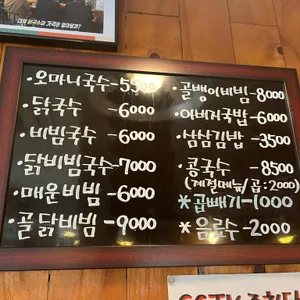 ·오마니국수-5500
·닭국수 -6000
·비빔국수 -6000
·닭비빔국수-7000
·매운비빔-6000
·골닭비빔-9000
·골뱅이비빔-8000
·아버지국밥-6000
·삼삼김밥-3500
·콩국수 -8500
(계절메뉴/곱:2000)
*곱빼기-1000
*음료수-2000